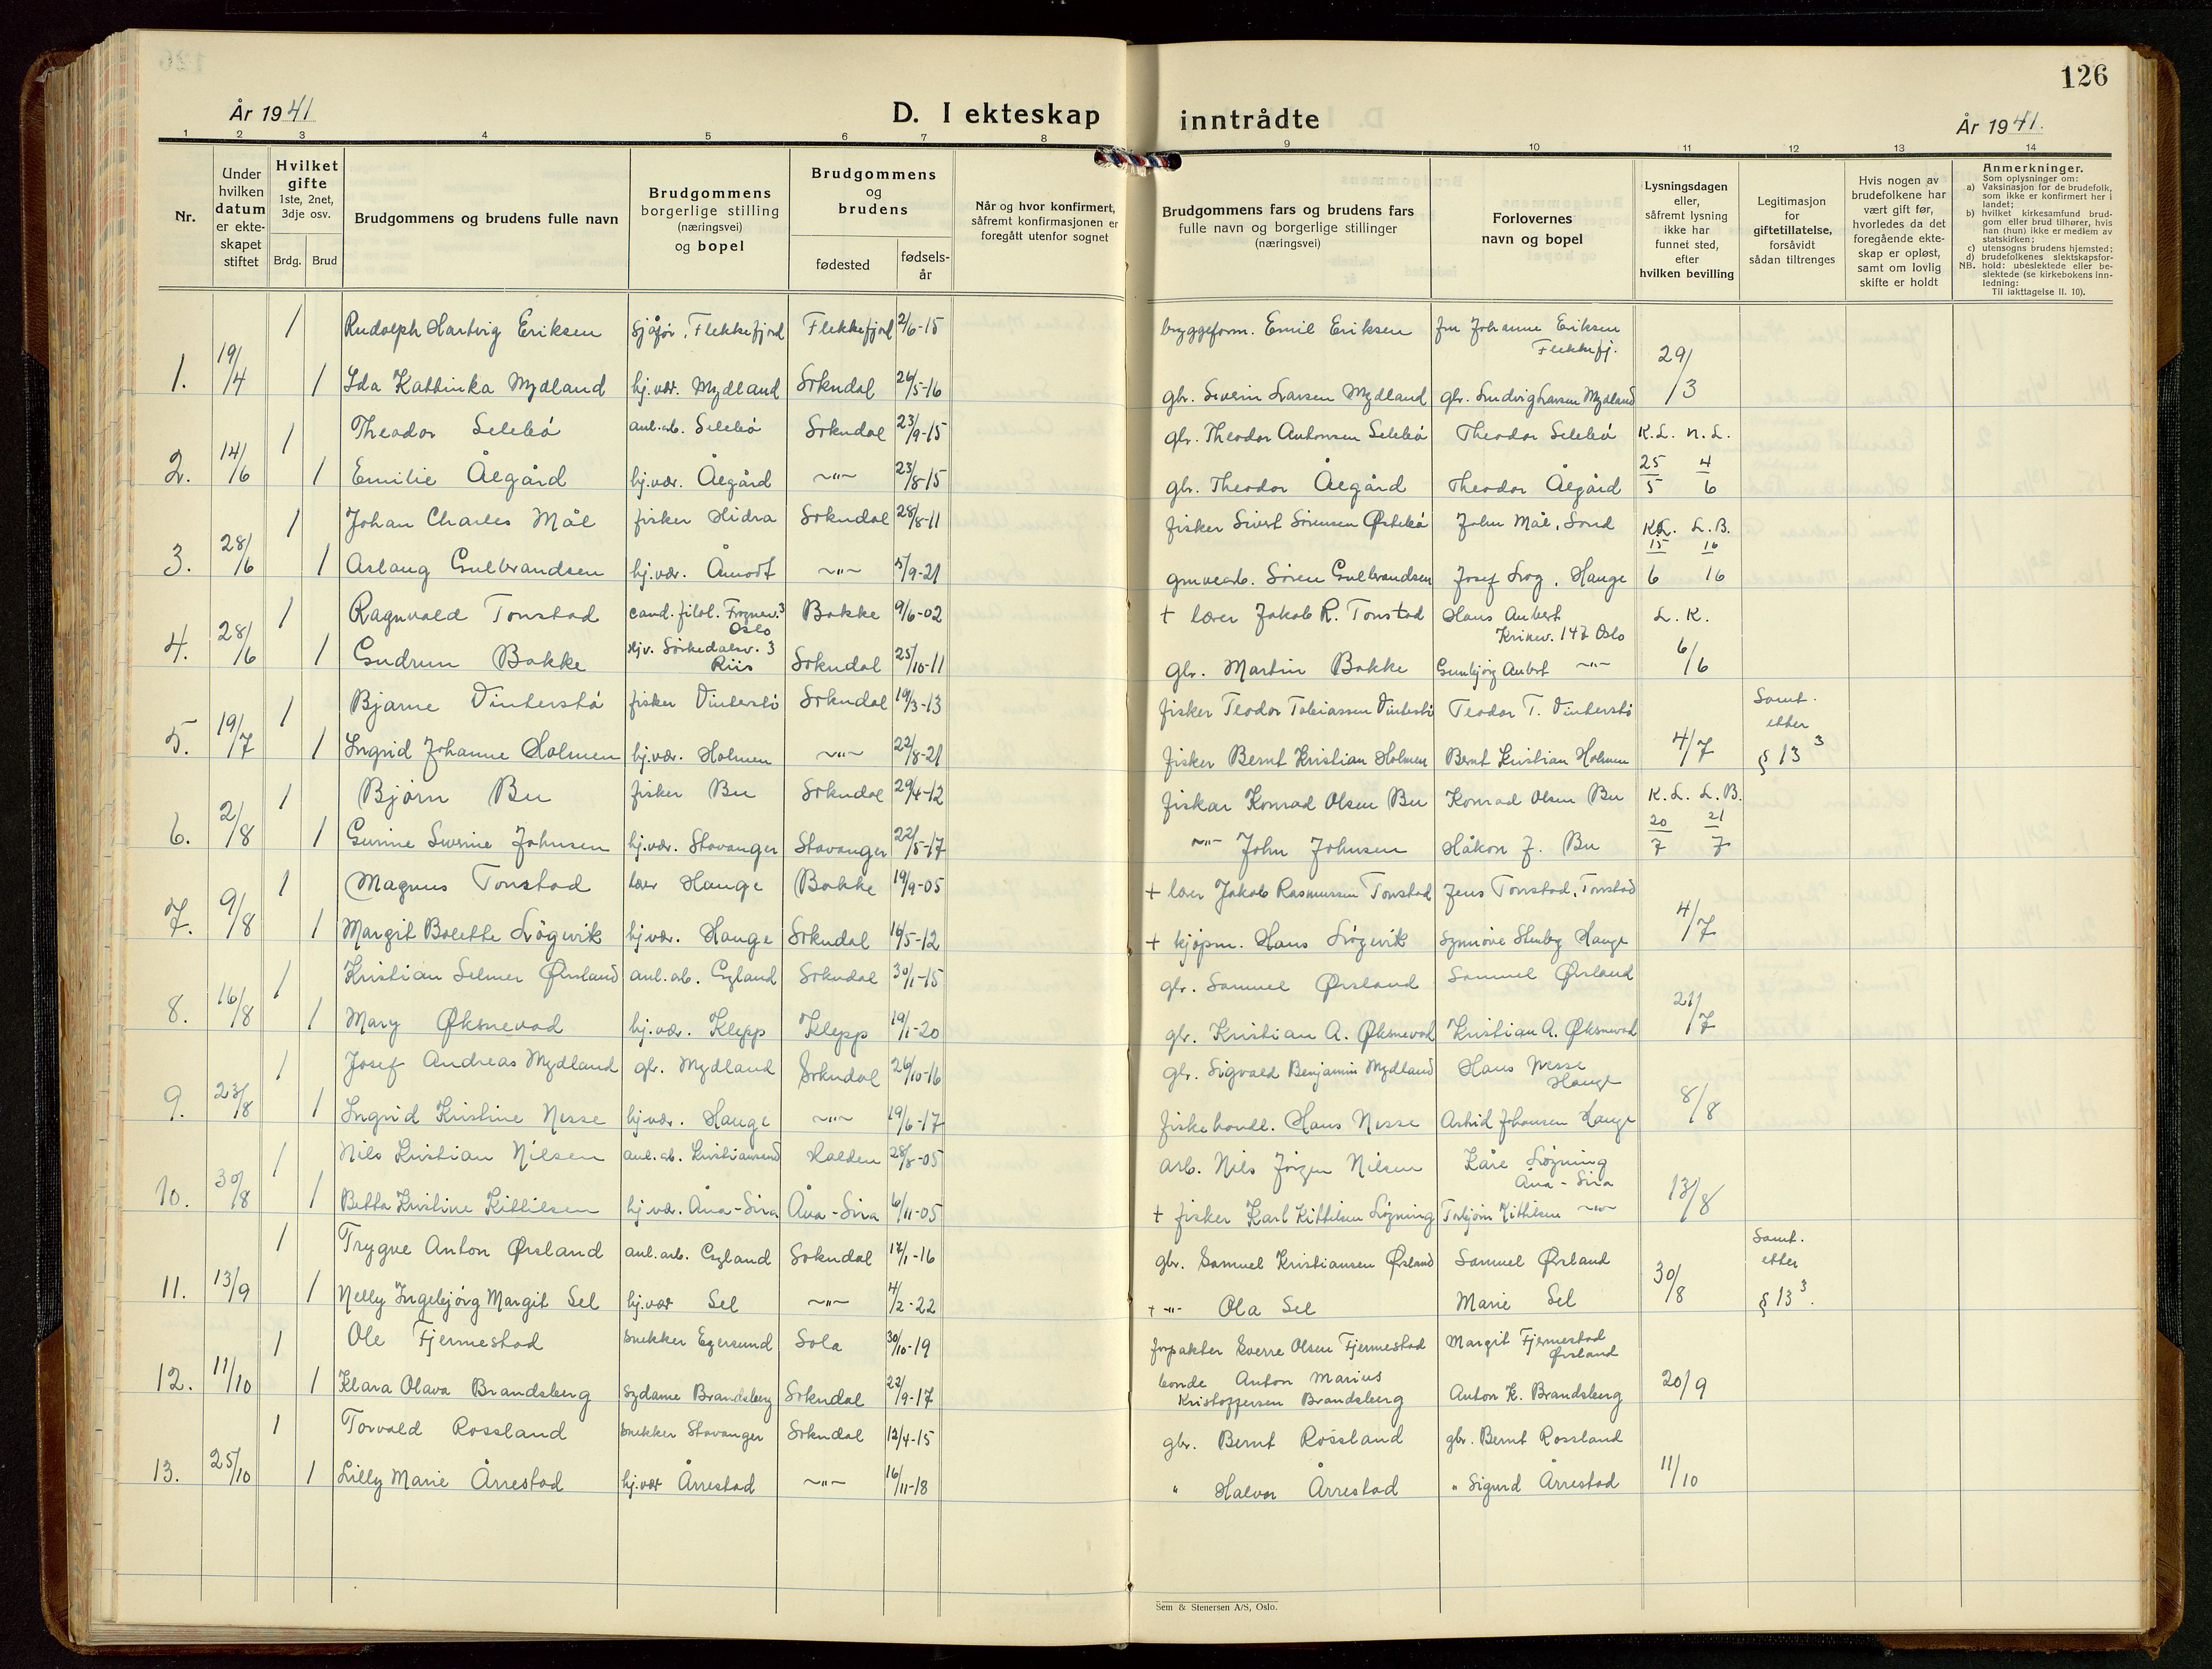 126
År 1941
D. I ekteskap inntrådte
År 1941.
1 2 3 4 5 6 7 8 9 10 11 12 13 14
Nr.
Under hvilken datum er ekteskapet stiftet
Hvilket gifte 1ste, 2net, 3dje osv.
Brdg. Brud
Brudgommens og brudens fulle navn
Brudgommens borgerlige stilling (næringsvei) og bopel
Brudgommens og brudens
fødested
fødselsår
Når og hvor konfirmert, såfremt konfirmasjonen er foregått utenfor sognet
Brudgommens fars og brudens fars fulle navn og borgerlige stillinger (næringsvei)
Forlovernes navn og bopel
Lysningsdagen eller, såfremt lysning ikke har funnet sted, efter hvilken bevilling
Legitimasjon for giftetillatelse, forsåvidt sådan tiltrenges
Hvis nogen av brudefolkene har vært gift før, hvorledes da det foregående ekteskap er opløst, samt om lovlig skifte er holdt
Anmerkninger.
Som oplysninger om:
a) Vaksinasjon for de brudefolk, som ikke er konfirmert her i landet;
b) hvilket kirkesamfund brudgom eller brud tilhører, hvis han (hun) ikke er medlem av statskirken;
c) utensogns brudens hjemsted;
d) brudefolkenes slektskapsforhold: ubeslektede eller beslektede (se kirkebokens innledning:
NB.
Til iakttagelse II. 10).
1 Rudolph Hartvig Eriksen sjåfør, Flekkefjord Flekkefjord 2/6-15 bryggeform. Emil Eriksen fru Johanne Eriksen Flekkefj.
1. 19/4 1 Ida Kathinka Mydland hj.vær. Mydland Sokndal 26/5-16 gbr. Severin Larsen Mydland gbr. Ludvig Larsen Mydland 29/3
1 Theodor Selebø anl.arb. Selebø Sokndal 23/9-15 gbr. Theodor Antonsen Selebø Theodor Selebø K.L. N.L.
2. 14/6 1 Emilie Ålgård hj.vær. Ålgård ~"~ 23/8-15 gbr. Theodor Ålgård Theodor Ålgård 25/5 4/6
1 Johan Charles Mål fisker Hidra Sokndal 28/8-11 fisker Sivert Sørensen Østebø John Mål, Sond K.L. L.B.
3. 28/6 1 Aslaug Gulbrandsen hj.vær. Åmodt ~"~ 5/9-21 gruvearb. Sören Gulbrandsen Josef Log, Hauge 15/6 16/16
1 Ragnvald Tonstad cand. filol. Frognerv. 3 Oslo Bakke 9/6-02 + lærer Jakob R. Tonstad Hans Aubert Kirkev. 147 Oslo L.K.
4. 28/6 1 Gudrun Bakke Hjv. Sørkedalsv. 3 Riis Sokndal 25/10-11 gbr. Martin Bakke Gunbjörg Aubert ~"~ 6/6
1 Bjarne Vinterstø fisker Vinterstø Sokndal 19/3-13 fisker Teodor Tobiassen Vinterstø Teodor T. Vinterstø Samt. etter
5. 19/7 1 Ingrid Johanne Holmen hj.vær. Holmen ~"~ 22/8-21 fisker Bernt Kristian Holmen Bernt Kristian Holmen 4/7 § 13 3
1 Bjørn Bu fisker Bu Sokndal 29/4-12 fisker Konrad Olsen Bu Konrad Olsen Bu K.L. L.B.
6. 2/8 1 Gurine Severine Johnsen hj.vær. Stavanger Stavanger 22/5-17 ~"~ John Johnsen Håkon J. Bu 20/7 21/7
1 Magnus Tonstad lærer Hauge Bakke 19/9-05 + lærer Jakob Rasmussen Tonstad Jens Tonstad, Tonstad
7. 9/8 1 Margit Bolette Løgevik hj.vær. Hauge Sokndal 16/5-12 + kjøpm. Hans Løgevik Synnöve Stenberg Hauge 4/7
1 Kristian Selmer Ørsland anl.arb. Egeland Sokndal 30/1-15 gbr. Samuel Ørsland Samuel Ørsland
8. 16/8 1 Mary Øksnevad hj.vær. Klepp Klepp 19/1-20 gbr. Kristian A. Øksnevad Kristian A. Øksnevad 21/7
1 Josef Andreas Mydland gbr. Mydland Sokndal 26/10-16 gbr. Sigvald Benjamin Mydland Hans Nesse Hauge
9. 23/8 1 Ingrid Kristine Nesse hj.vær. Hauge ~"~ 19/6-17 fiskehandl. Hans Nesse Astrid Johansen Hauge 8/8
1 Nils Kristian Nilsen anl.ab. Kristiansand Halden 28/8-05 arb. Nils Jörgen Nilsen Kåre Løgning Åna-Sira
10. 30/8 1 Betta Kristine Kittilsen hj.vær. Åna-Sira Åna-Sira 6/11-05 + fisker Karl Kittilsen Løgning Torbjörn Kittilsen ~"~ 13/8
1 Trygve Anton Ørsland anl.arb. Egeland Sokndal 17/1-16 gbr. Samuel Kristiansen Ørsland Samuel Ørsland Samt. etter
11. 13/9 1 Nelly Ingebjørg Margit Sel hj.vær Sel ~"~ 4/2-22 + -"- Ola Sel Marie Sel 30/8 § 13 3.
1 Ole Fjermestad snekker Egersund Sola 30/10-19 forpakter Sverre Olsen Fjermestad Margit Fjermestad Ørsland
12. 11/10 1 Klara Olava Brandsberg sydame Brandsberg Sokndal 22/9-17 bonde Anton Marius Kristoffersen Brandsberg Anton K. Brandsberg 20/9
1 Torvald Rossland snekker Stavanger Sokndal 12/4-15 gbr. Bernt Rossland gbr. Bernt Rossland
13. 25/10 1 Lilly Marie Årrestad hj.vær Årrestad ~"~ 16/11-18 " Halvor Årrestad " Sigurd Årrestad 11/10
Sem & Stenersen A/S, Oslo.